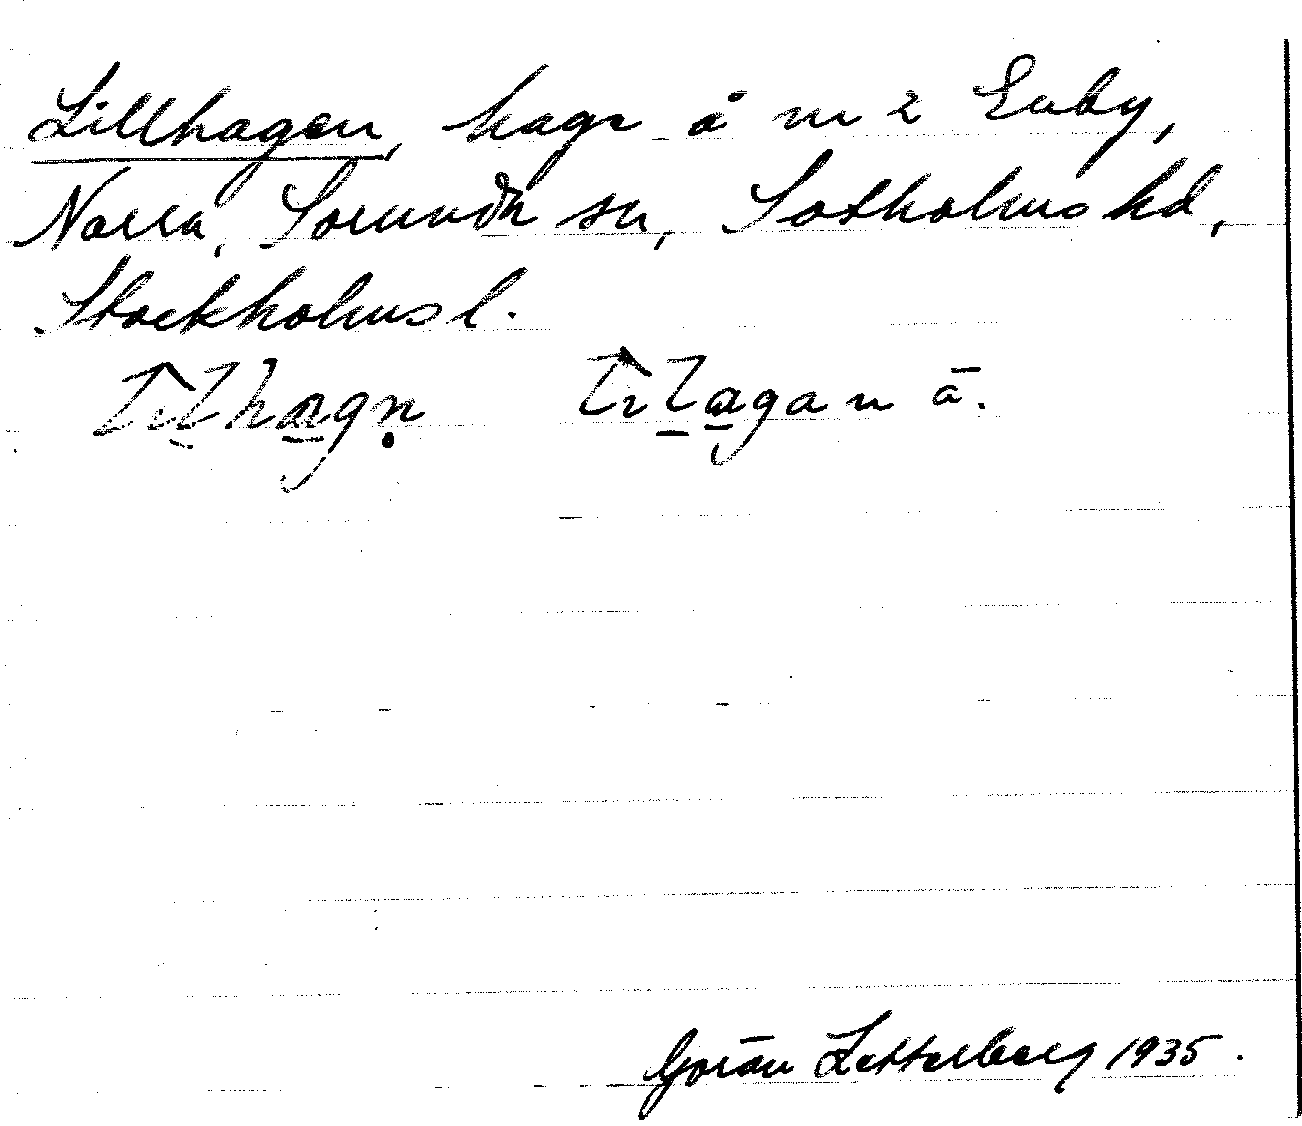 Lillhagen, hage å nr 2 Enby,
Norra, Sorunda sn, Sotholms hd,
Stockholms l.
ä.
Göran Zetterberg 1935.